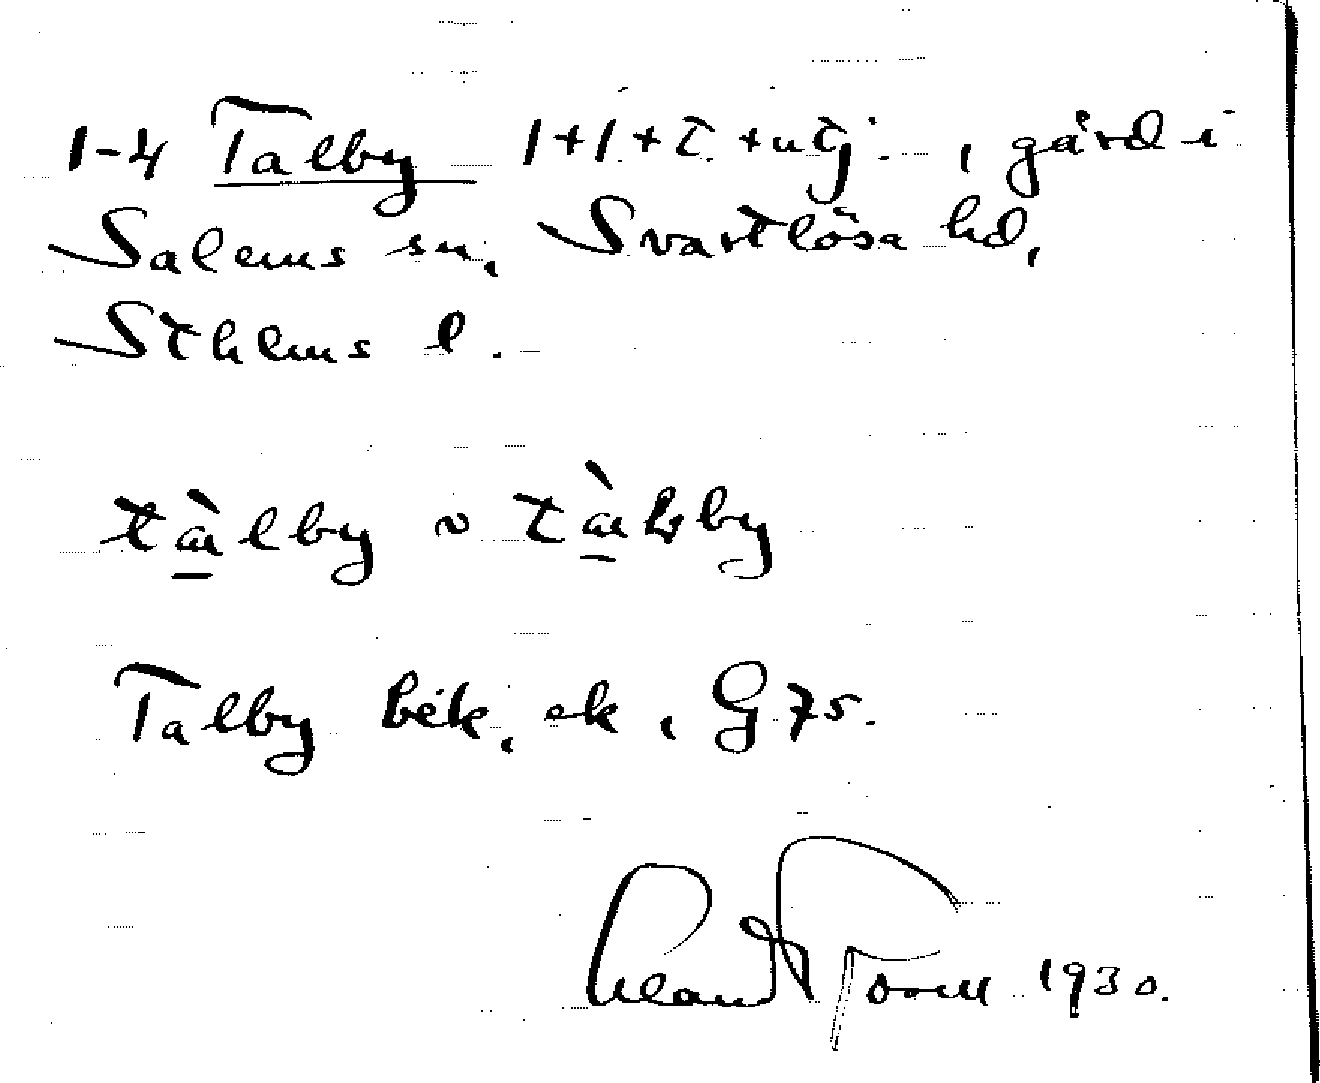 1-4 Talby 1+1+t. + utj., gård i
Salems sn, Svartlösa hd,
Sthlms l.
tàlby ~ tàlby
Talby bék, ek, G 75.
1930.